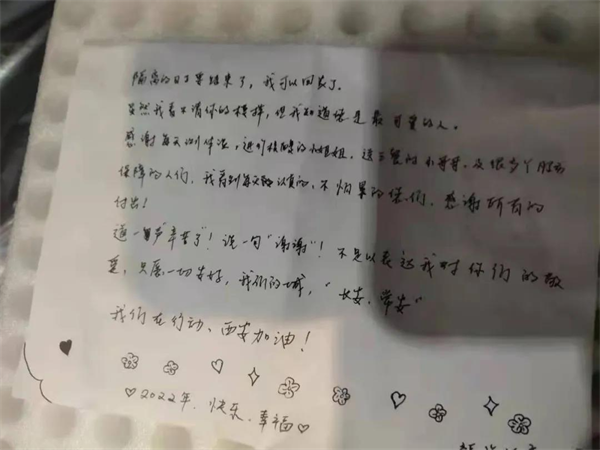 隔离的日子要结束了，我可以回家了。
虽然我看不清你的模样，但我知道你是最可爱的人。
感谢每天测体温，进行核酸的小姐姐，送三餐的小哥哥，及很多个服务
保障的人们，我看到每天认真的、不怕累的你们，感谢所有的
付出！
道一声"辛苦了"！说一句"谢谢"！不足以表达我对你们的敬
意，只愿一切安好，我们的城，"长安，常安"
我们在行动、西安加油！
2022年、快乐、幸福